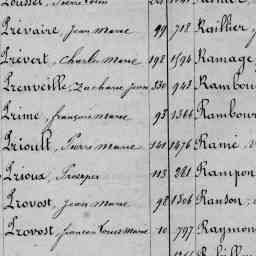 Prévaire, Jean Marie 99 718 Raillier,
Prévert, Charles Marie 198 1594 Ramage
Preuveille, Zacharie Jean 330 943 Rambou
Prime, François Marie 93 1366 Rambour
Prioult, Pierre Marie 141 1476 Ramé,
Prioux, Prosper 113 281 Rampon
Provost, Jean Marie 98 1306 Ranson,
Provost, François Louis Marie 10 797 Raymon